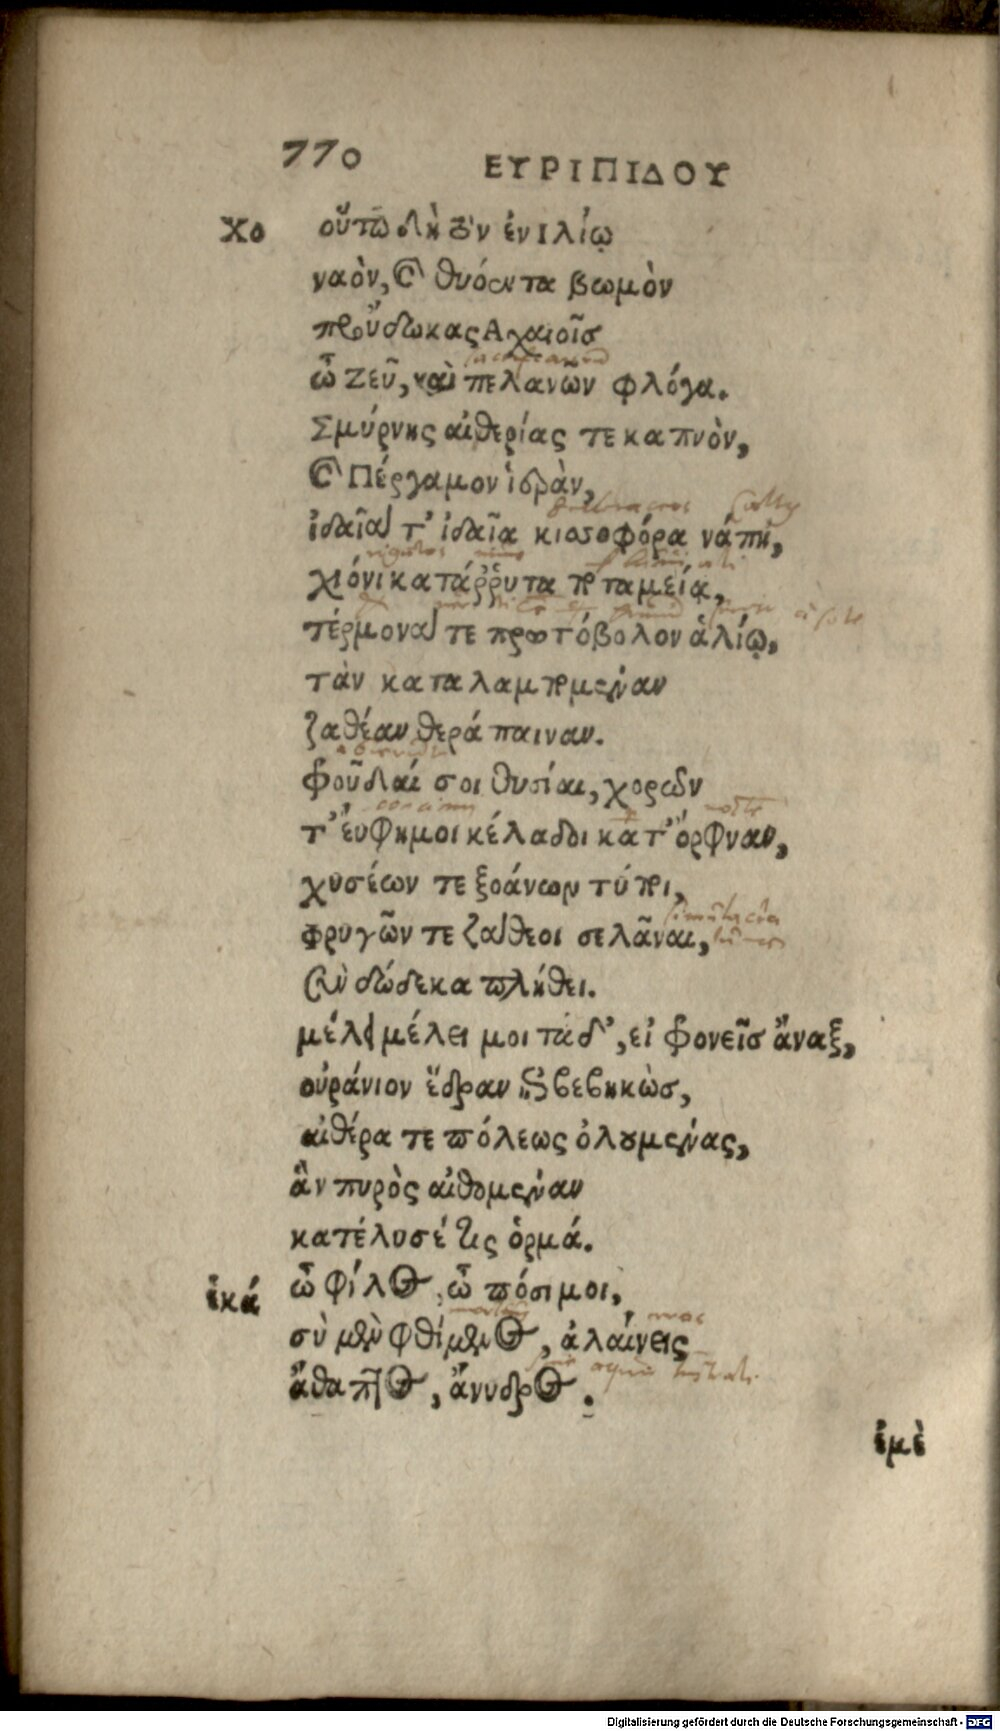 770 ΕΥΡΙΠΙΔΟΥ
Χο οὕτω δὴ τὸν ἐν Ιλίῳ
ναὸν, καὶ θυόεντα βωμὸν
προὔδωκας Αχαιοῖς
ὦ Ζεῦ, καὶ πελανῶν φλόγα.
Σμύρνης αἰθερίας τε καπνὸν,
καὶ Πέργαμον ἱερὰν,
ἰδαῖά τ' ἰδαῖα κισσοφόρα νάπη,
χιόνι κατάῤῥυτα ποταμείᾳ,
τέρμονά τε πρωτόβολον ἁλίῳ,
τὰν καταλαμπομέναν
ζαθέαν θεράπαιναν.
φροῦδαί σοι θυσίαι, χορῶν
τ' ἔυφημοι κέλαδοι κατ' ὄρφναν,
χυσέων τε ξοάνων τύποι,
φρυγῶν τε ζάθεοι σελᾶναι,
σὺν δώδεκα πλήθει.
μέλει μέλει μοι τάδ', εἰ φρονεῖς ἄναξ,
οὐράνιον ἕδραν ἐπιβεβηκὼς,
αἰθέρα τε πόλεως ὀλουμένας,
ἂν πυρὸς αἰθομέναν
κατέλυσέ τις ὁρμά.
ἑκά ὦ φίλος, ὦ πόσι μοι,
σὺ μὲν φθίμενος, ἀλαίνεις
ἄθαπτος, ἄνυδρος.
ἐμὲ
Digitalisierung gefördert durch die Deutsche Forschungsgemeinschaft - DFG